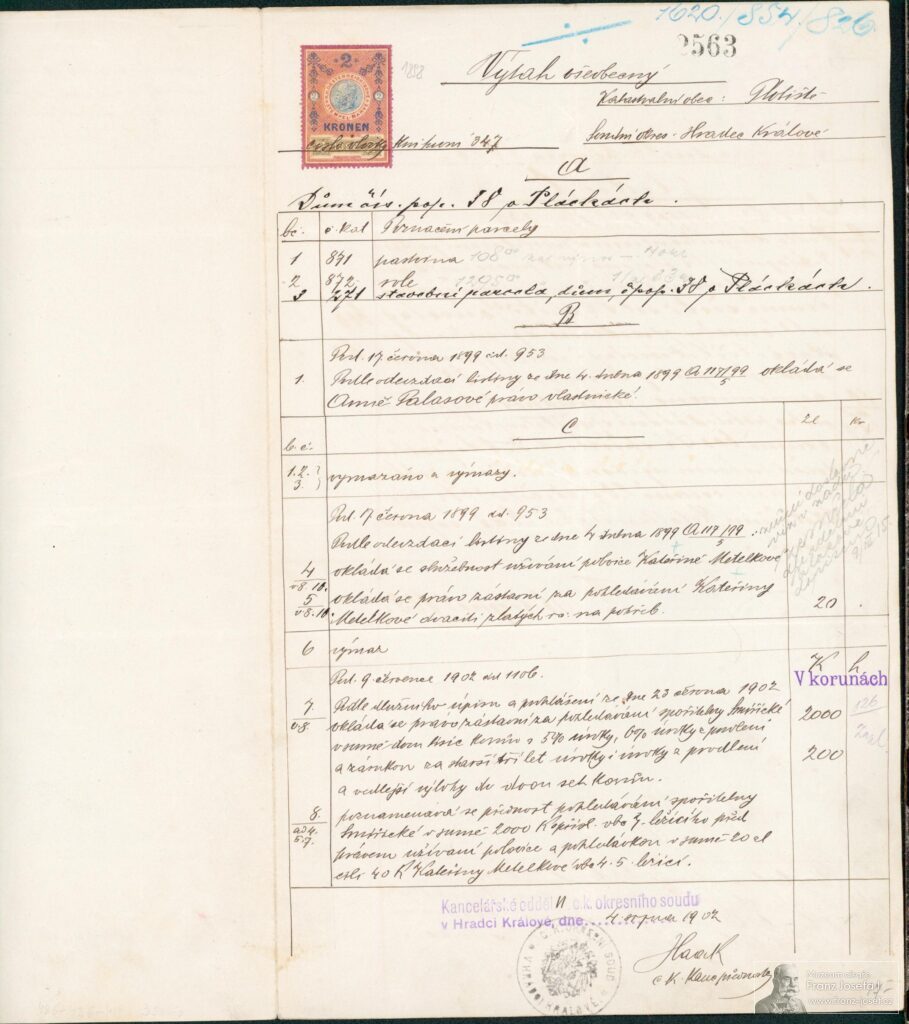 1620/854/826
2563
1898
2
KRONEN
Výtah všeobecný
Katastrální obec: Plotiště
Soudní okres - Hradec Králové
číslo vložky knihovní 347
A
Dům čís. pop. 38 v Pláckách.
bč. č. kat Poznačení parcely
1 871 pastvina 108
2 872 role 1295
3 271 stavební parcela, dům, č. pop. 38 v Pláckách.
B
Pod. 17 června 1899 čd. 953
1. Podle odevzdací listiny ze dne 4. dubna 1899 A 117/99 5 vkládá se
Anně Palasové právo vlastnické.
C
zl kr
b. č.
1. 2. 3. } vymazáno a výmazy.
Pod. 17 června 1899 čd. 953
Podle odevzdací listiny ze dne 4. dubna 1899 A 117/99 5
4 vkládá se služebnost užívání polovice Kateřině Metelkové
v 8. 10.
5 vkládá se právo zástavní za pohledávání Kateřiny
v 8. 10. Metelkové dvaciti zlatých na potřeb. 20
6 výmaz
K h
V korunách
Pod. 9 července 1902 čd 1106.
7 Podle dlužního úpisu a prohlášení ze dne 23 června 1902
v 8. vkládá se právo zástavní za pohledávání spořitelny Smiřické 2000
v sumě dvou tisíc korun s 5% úroky, 6% úroky z prodlení
a zámkou za starší tří let úroky i úroky z prodlení 200
a vedlejší výlohy do dvou set korun.
8. poznamenává se přednost pohledávání spořitelny
ad 4. 5. 7. Smiřické v sumě 2000 K s přísl. vbč 7. ležícího před
právem užívání polovice a pohledávkou v sumě 20 zl
čili 40 K Kateřiny Metelkové vbč 4. 5. ležící.
Kancelářské odděl. II c. k. okresního soudu
v Hradci Králové, dne 4. srpna 1902
C. K. OKRESNÍ SOUD V HRADCI KRÁLOVÉ
c. k.
Muzeum císaře
Franz Josefa I.
www.franz-josef.cz